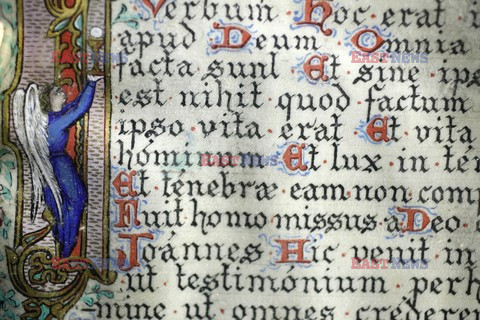 Verbum · Hoc · erat i
apud Deum · Omnia
facta sunt · Et sine ips
est nihil quod · factum
ipso · vita erat · Et vita
hóminum · Et lux in té
Et ténebræ eam non comp
Fuit homo missus · a Deo · u
Joánnes · Hic · venit in
ut testimónium perh
mine ut omnes créderen
EASTNEWS
EASTNEWS
EASTNEWS
EASTNEWS
EASTNEWS
EASTNEWS
EASTNEWS